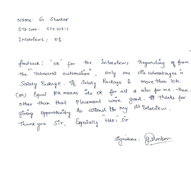 Name: G Shankar
Interviews: 01
feedback: "ok" for the interviews Regarding of from
the "Technical automation", only one disadvantages is
Salary Package. If Salary Package is more than
(or) Equal means its ok for all & also for me. then
other than that Placement were good. thanks for
giving opportunity to attend the my Interview.
Thank you Sir, Especially "Hari" Sir
Signature: